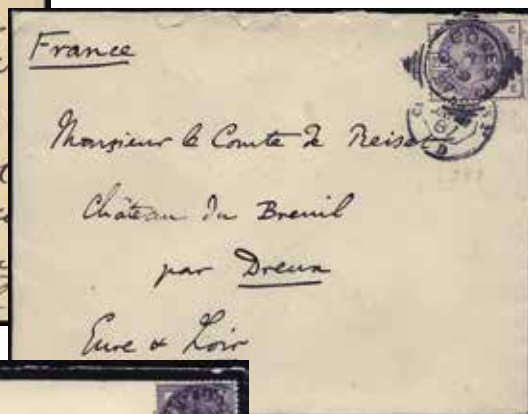 France
Monsieur le Comte de Reiset
Château du Breuil
par Dreux
Eure & Loir